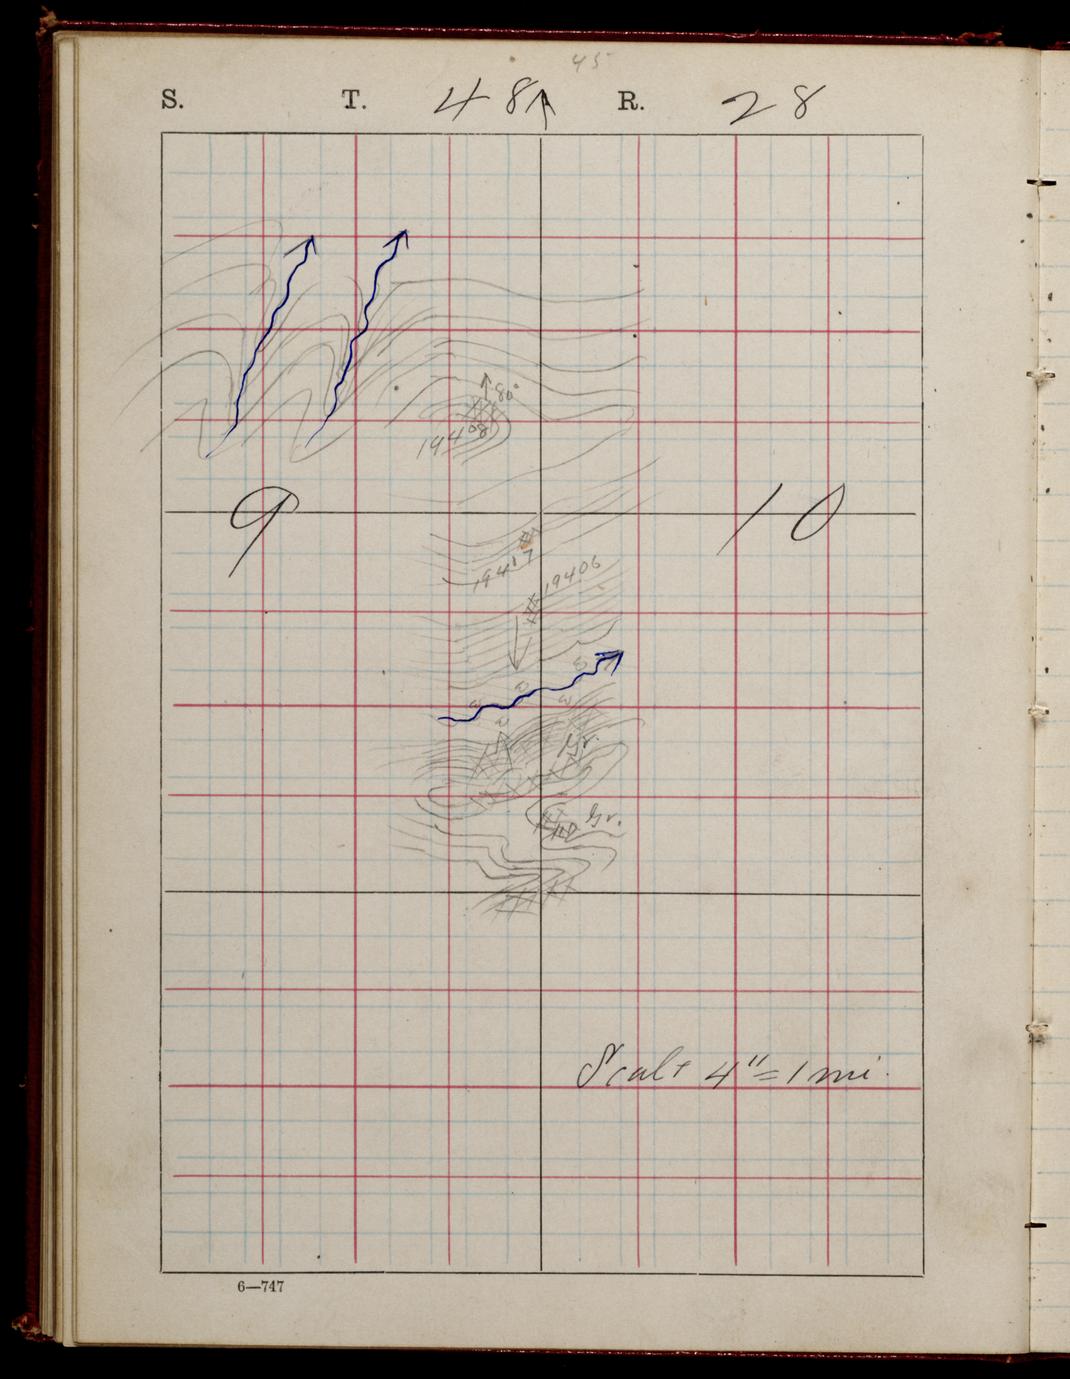 45
S. T. 48 R. 28
80°
19408
9 10
19417
19406
Gr.
Gr.
Scale 4"=1 mi.
6—747